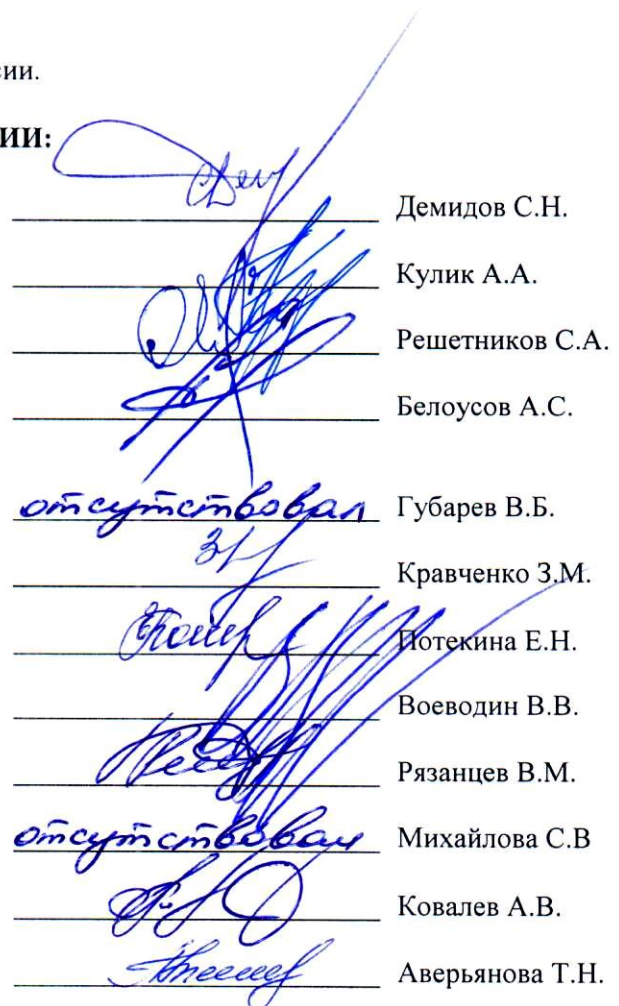 сии.
ИИ:
Демидов С.Н.
Кулик А.А.
Решетников С.А.
Белоусов А.С.
отсутствовал Губарев В.Б.
Кравченко З.М.
Потекина Е.Н.
Воеводин В.В.
Рязанцев В.М.
отсутствовал Михайлова С.В
Ковалев А.В.
Аверьянова Т.Н.